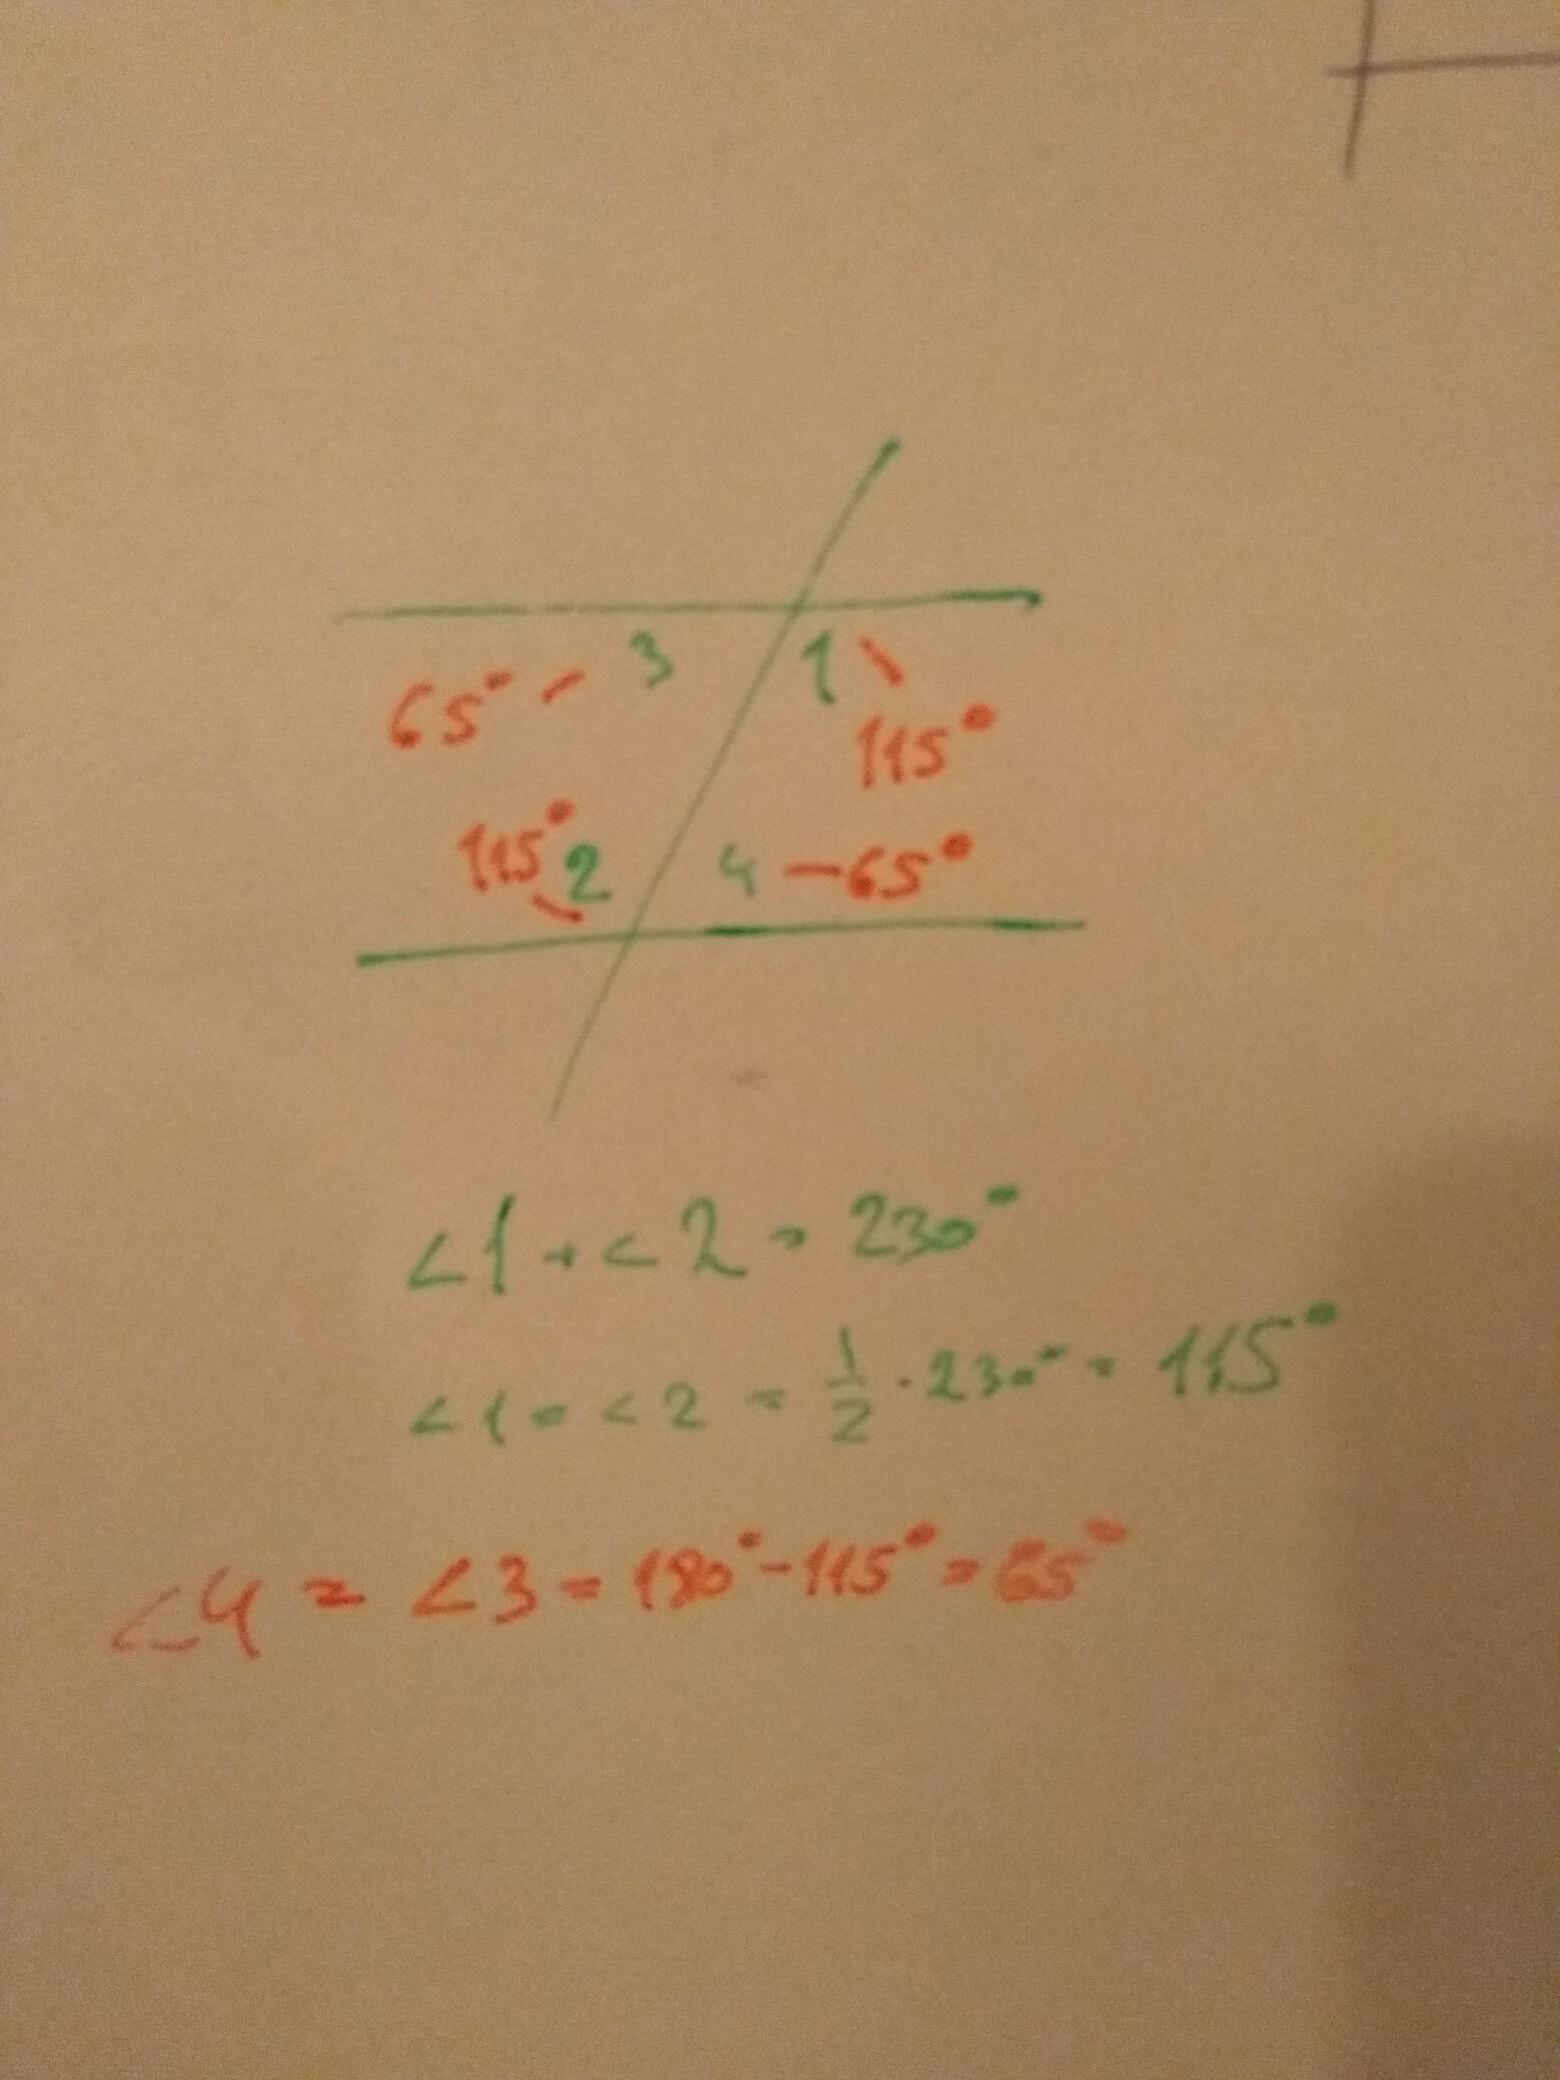 3 1
65° 115°
115° 2 4 65°
∠1 + ∠2 = 230°
∠1 = ∠2 = 1/2 · 230° = 115°
∠4 = ∠3 = 180° - 115° = 65°